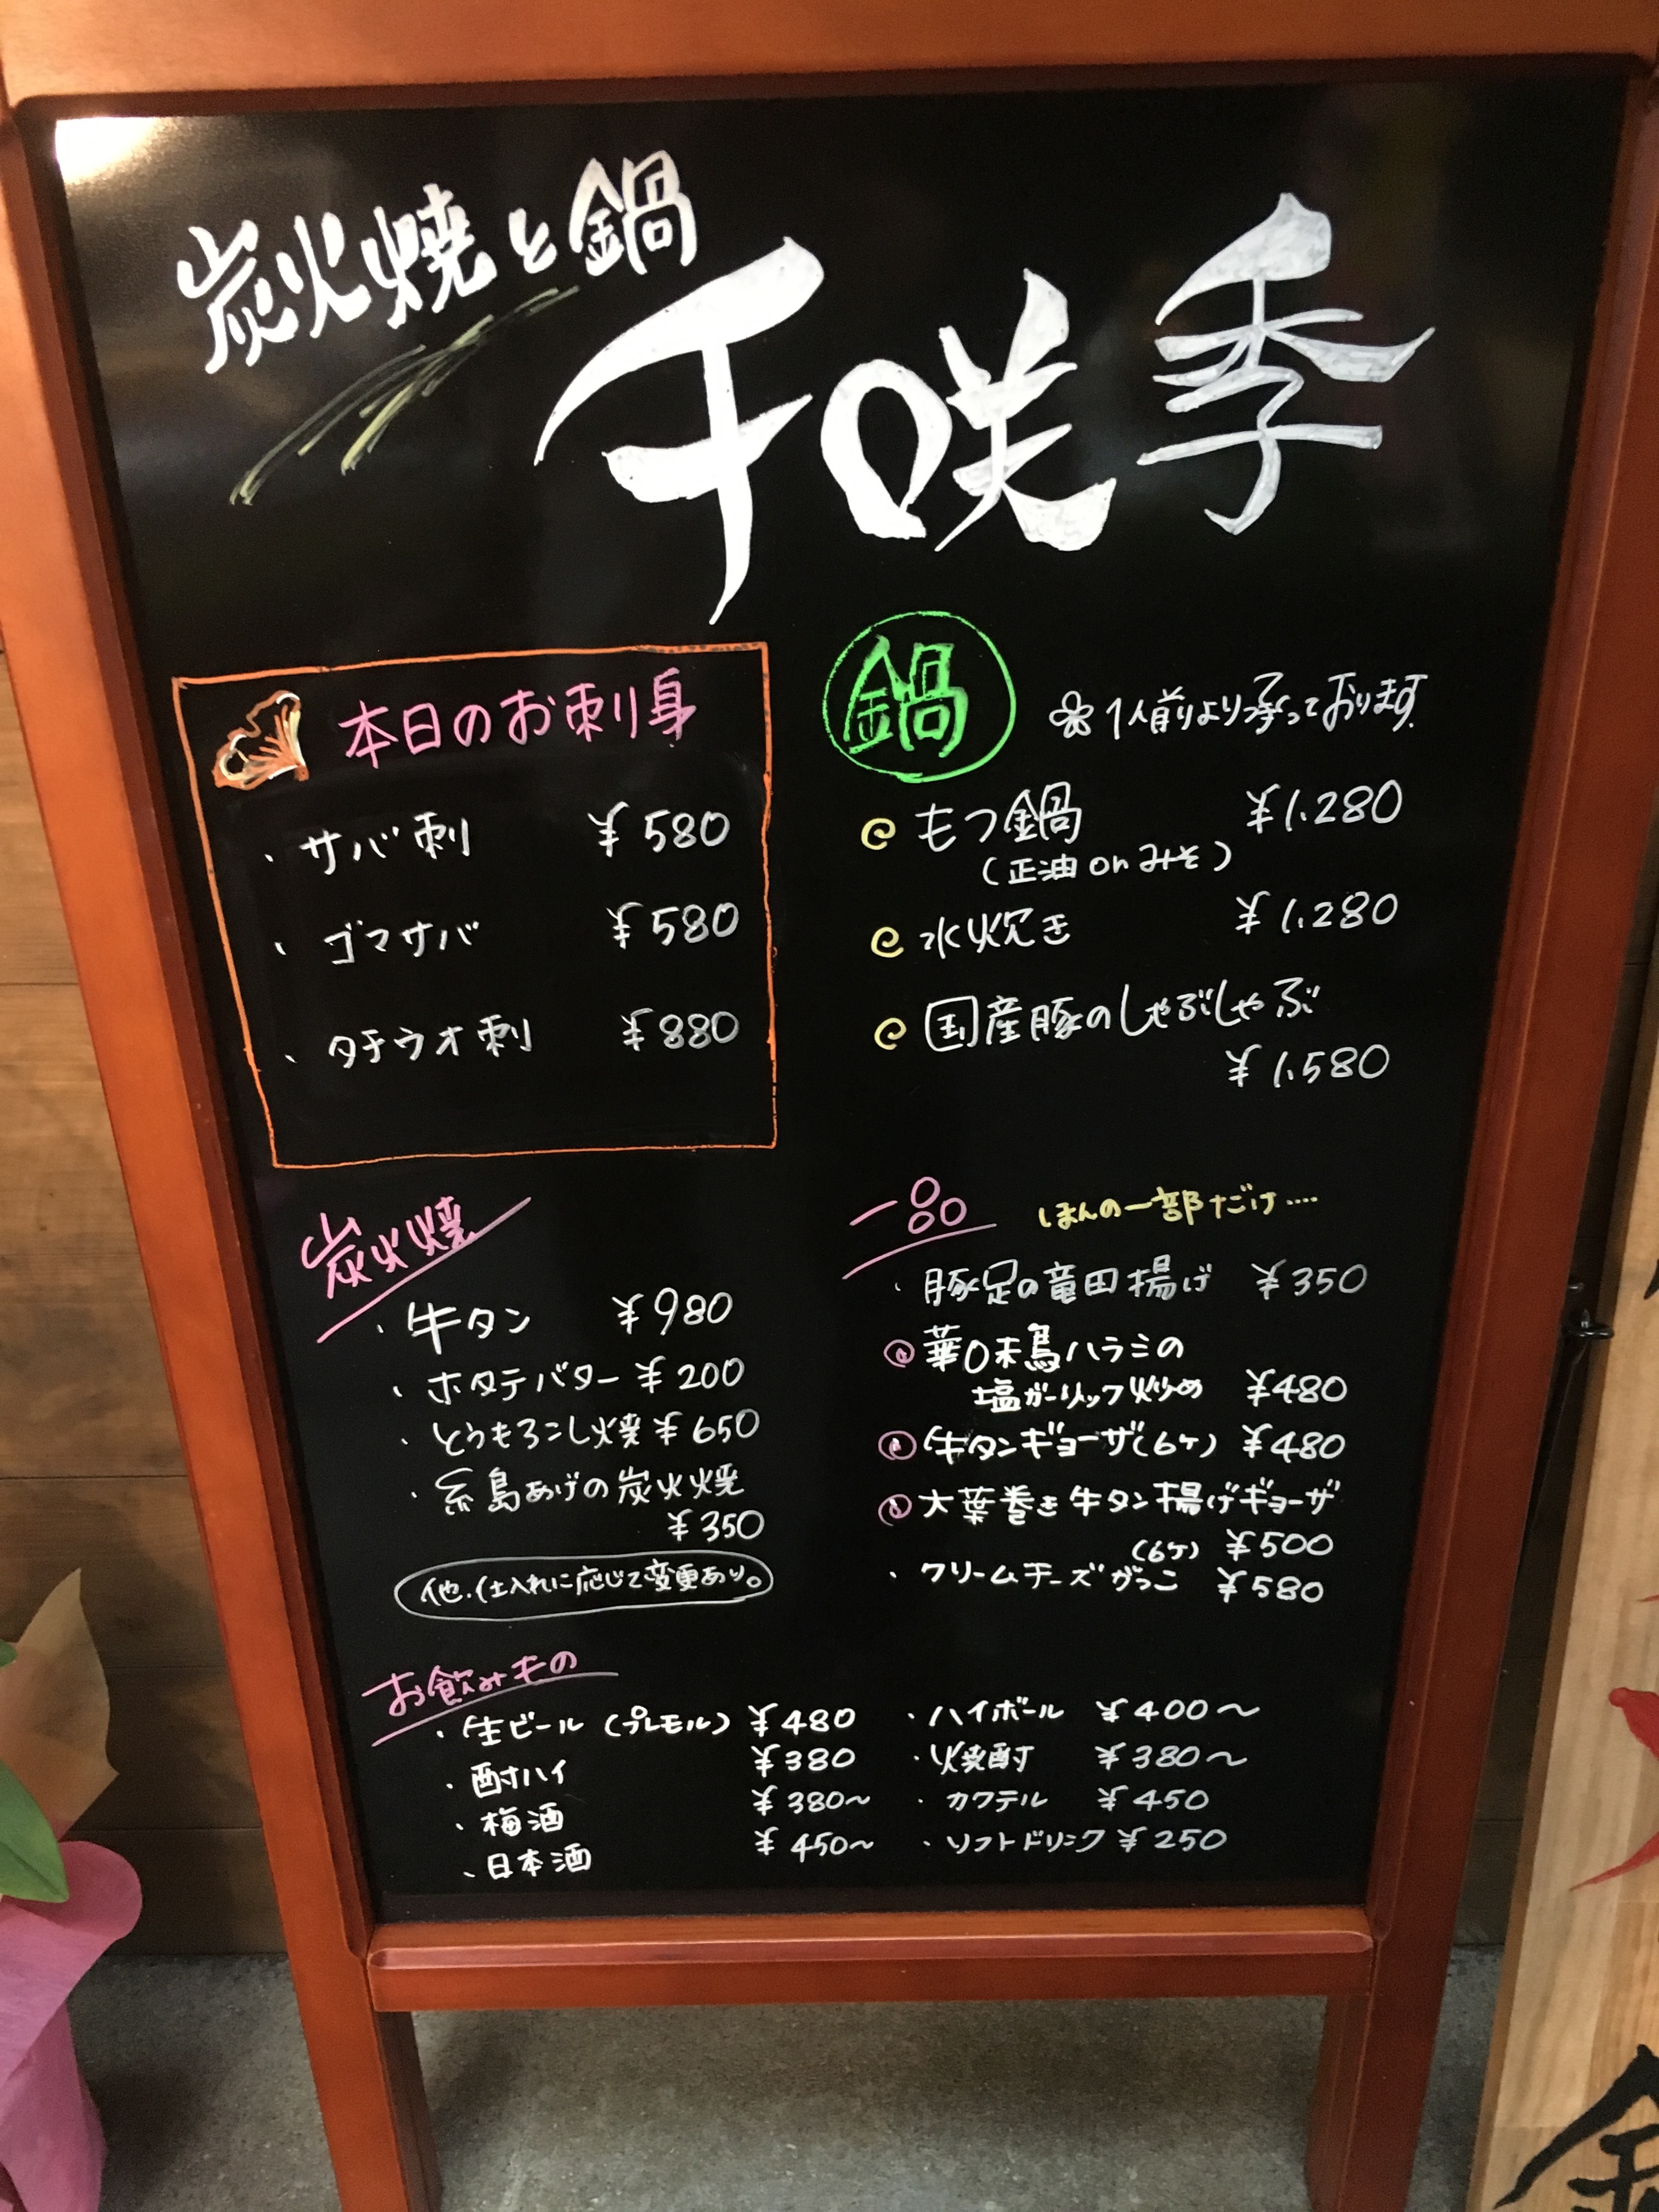 炭火焼と鍋
千咲季
本日のお刺身
・サバ刺 ¥580
・ゴマサバ ¥580
・タチウオ刺 ¥880
鍋
1人前より承っております
もつ鍋 ¥1,280
(正油orみそ)
水炊き ¥1,280
国産豚のしゃぶしゃぶ
¥1,580
炭火焼
・牛タン ¥980
・ホタテバター ¥200
・とうもろこし焼 ¥650
・糸島あげの炭火焼
¥350
他.仕入れに応じて変更あり。
一品 ほんの一部だけ....
・豚足の竜田揚げ ¥350
華味鳥ハラミの
塩ガーリック炒め ¥480
牛タンギョーザ(6ケ) ¥480
大葉巻き牛タン揚げギョーザ
(6ケ) ¥500
・クリームチーズがっこ ¥580
お飲みもの
・生ビール (プレモル) ¥480
・酎ハイ ¥380
・梅酒 ¥380〜
・日本酒 ¥450〜
・ハイボール ¥400〜
・焼酎 ¥380〜
・カクテル ¥450
・ソフトドリンク ¥250